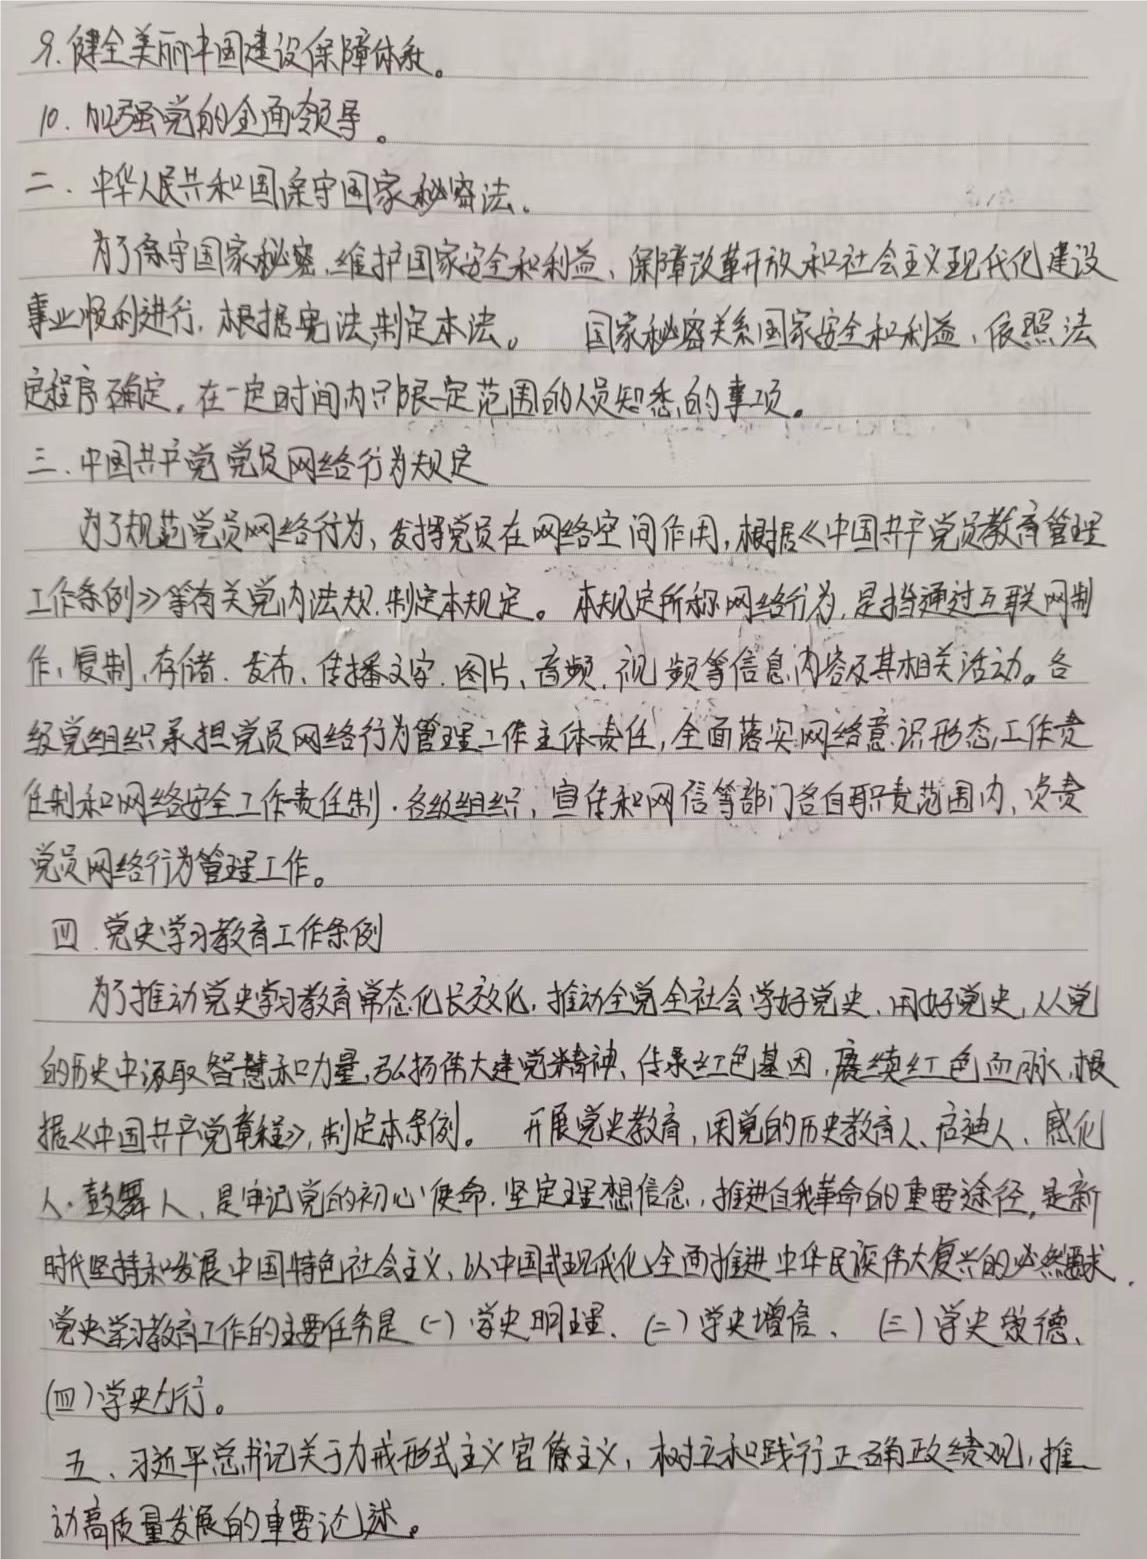 9.健全美丽中国建设保障体系。
10.加强党的全面领导。
二.中华人民共和国保守国家秘密法.
为了保守国家秘密,维护国家安全和利益、保障改革开放和社会主义现代化建设
事业顺利进行,根据宪法,制定本法。 国家秘密关系国家安全和利益,依照法
定程序确定,在一定时间内只限一定范围的人员知悉的事项。
三.中国共产党党员网络行为规定
为了规范党员网络行为,发挥党员在网络空间作用,根据《中国共产党员教育管理
工作条例》等有关党内法规,制定本规定。本规定所称网络行为,是指通过互联网制
作,复制,存储.发布、传播文字.图片、音频.视频等信息内容及其相关活动。各
级党组织承担党员网络行为管理工作主体责任,全面落实网络意识形态工作责
任制和网络安全工作责任制.各级组织,宣传和网信等部门各自职责范围内,负责
党员网络行为管理工作。
四.党史学习教育工作条例
为了推动党史学习教育常态化长效化,推动全党全社会学好党史、用好党史,从党
的历史中汲取智慧和力量,弘扬伟大建党精神、传承红色基因,赓续红色血脉,根
据《中国共产党章程》,制定本条例。 开展党史教育,用党的历史教育人、启迪人、感化
人.鼓舞人,是牢记党的初心使命.坚定理想信念,推进自我革命的重要途径,是新
时代坚持和发展中国特色社会主义、以中国式现代化全面推进中华民族伟大复兴的必然要求.
党史学习教育工作的主要任务是(一)学史明理、(二)学史增信、(三)学史崇德、
(四)学史力行。
五、习近平总书记关于力戒形式主义官僚主义,树立和践行正确政绩观,推
动高质量发展的重要论述。